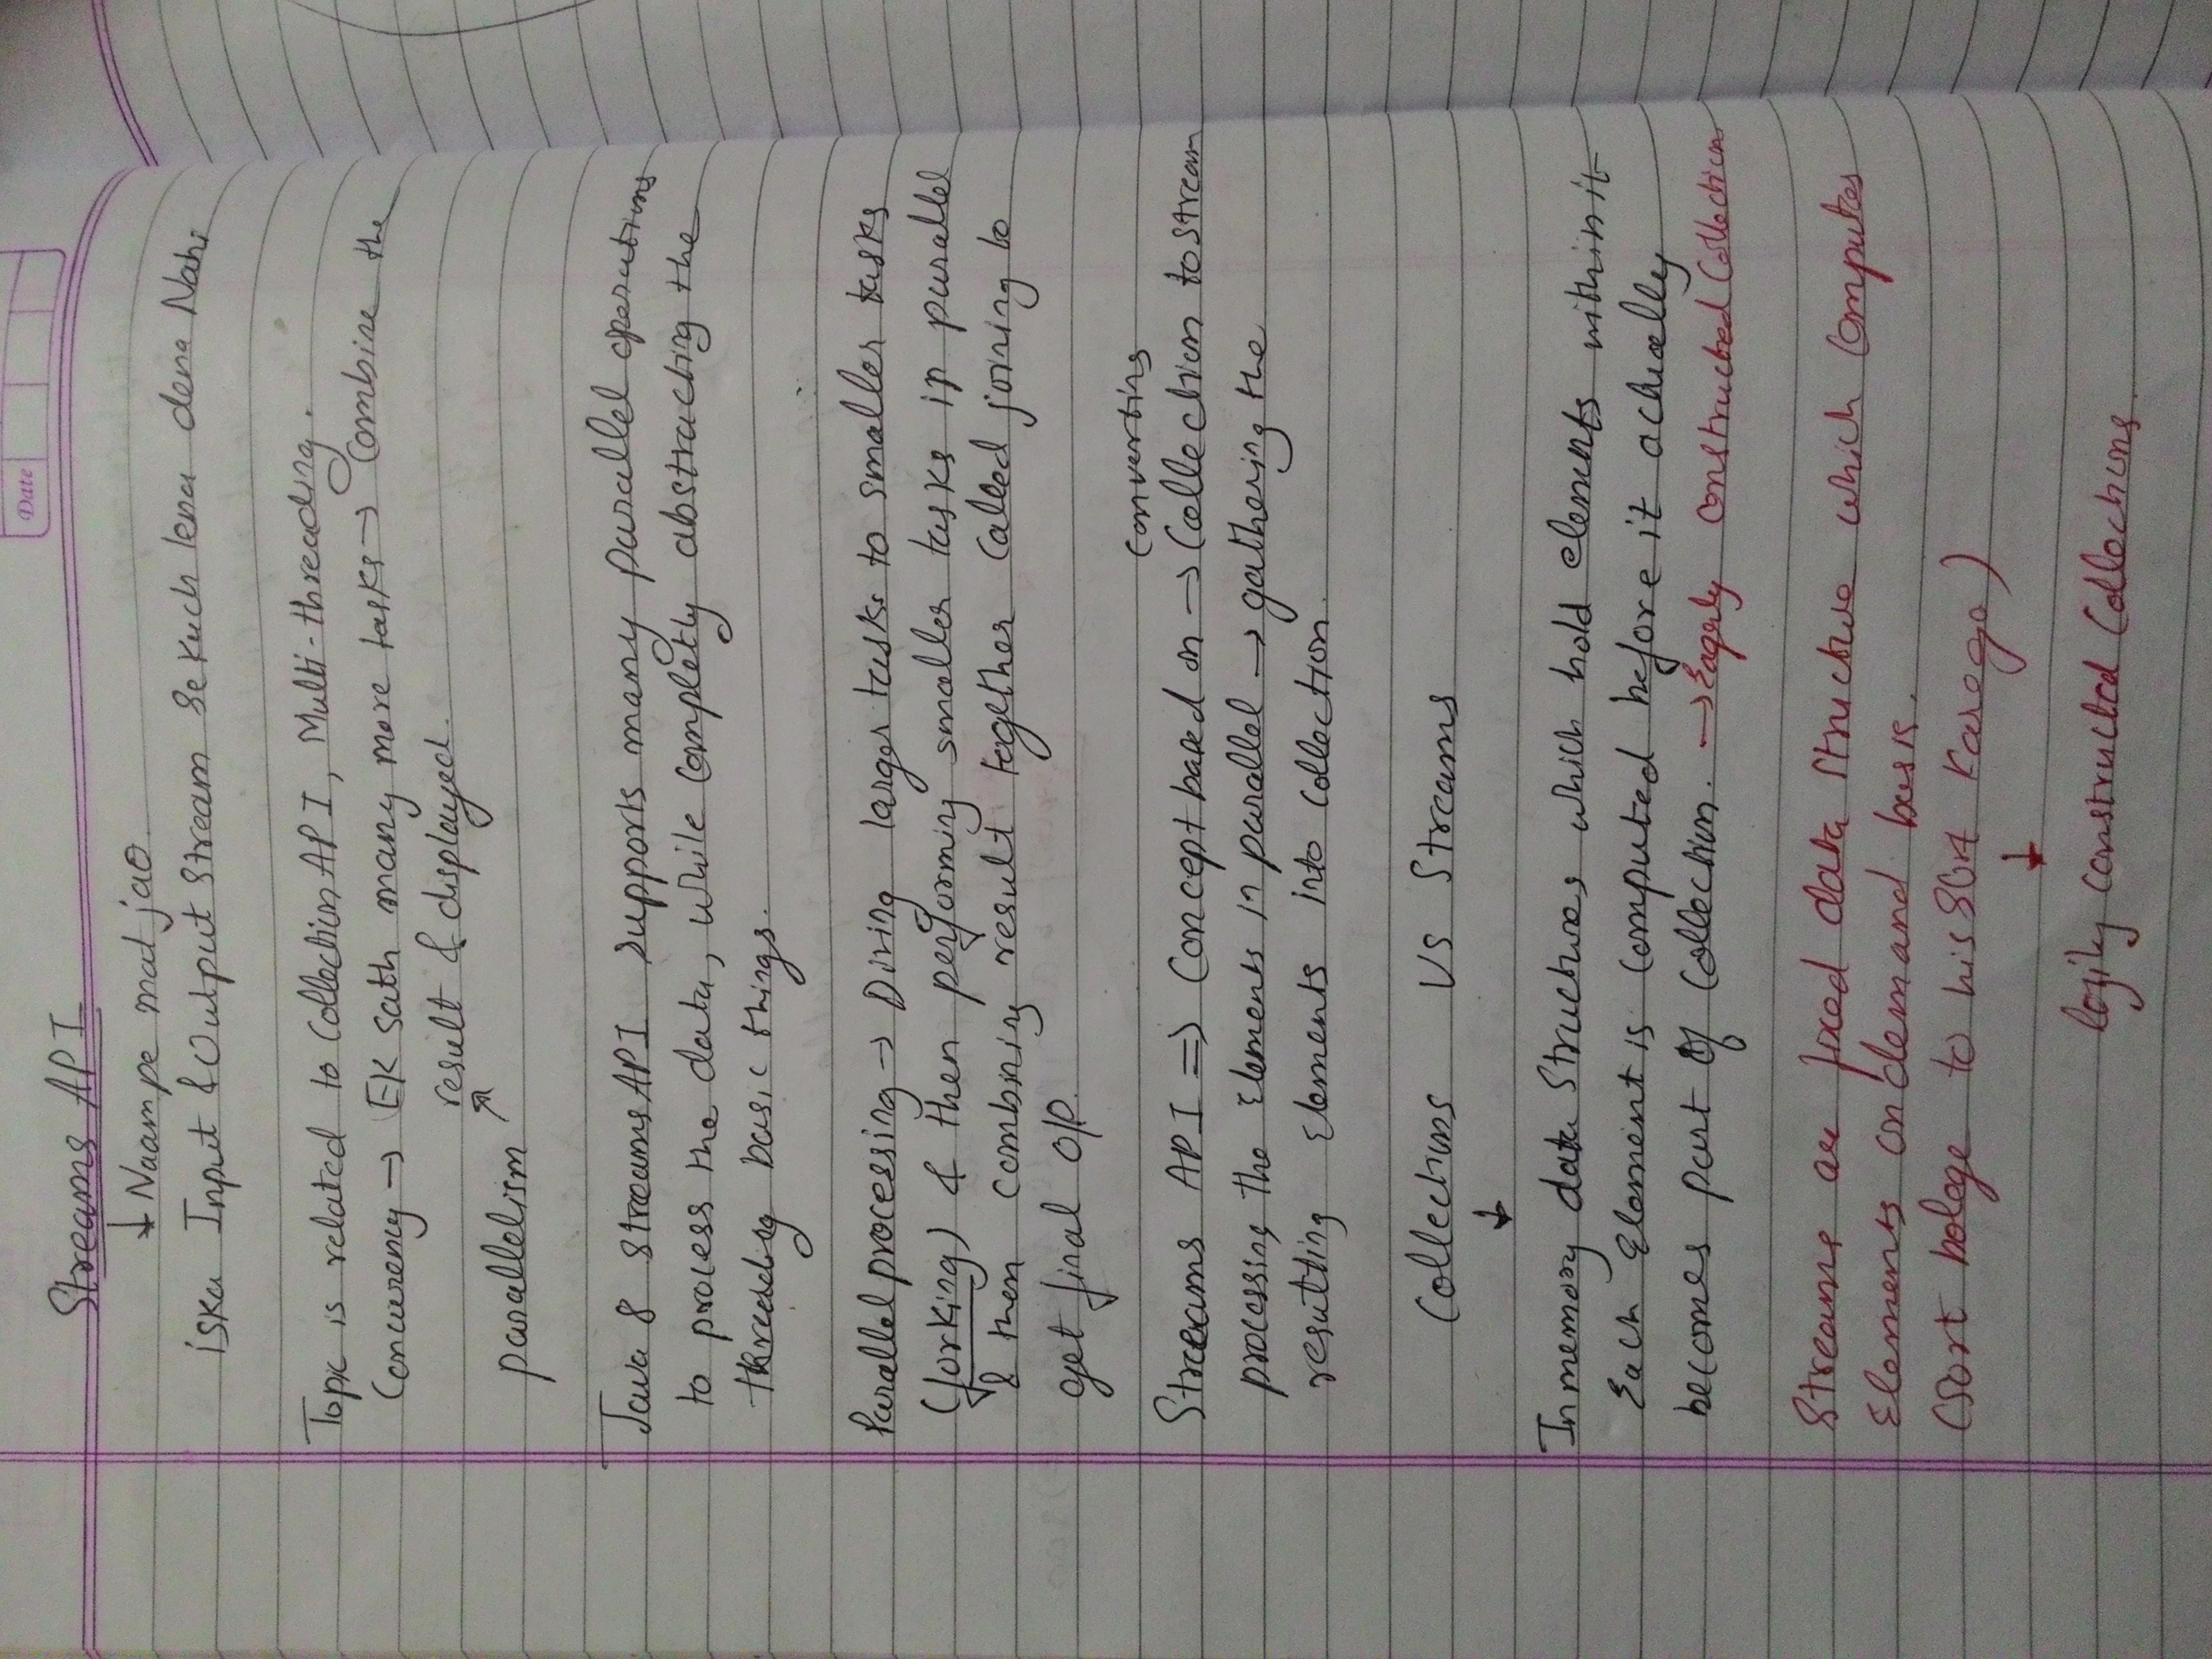 Date
Streams API
↓ Naam pe mat jao.
iska Input & Output Stream se kuch lena dena Nahi
Topic is related to Collection API, Multi-threading.
Concurency → Ek sath many more tasks → Combine the
result & displayed.
parallelism ↗
Java 8 Streams API supports many parallel operations
to process the data, while completly abstracting the
threading basic things.
Parallel processing → Diving larger tasks to smaller tasks
(forking) & then performing smaller tasks in parallel
& then combining result together called joining to
get final O/P.
converting
Streams API ⇒ Concept based on → Collection to stream
processing the Elements in parallel → gathering the
resulting Elements into collection.
Collections VS Streams
↓
In memory data Structures which hold elements within it
Each Element is computed before it actually
becomes part of Collection. → Eagerly constructed Collection
Streams are fixed data structure which computes
Elements on demand basis.
(Sort bologe to hi sort Karega)
↓
lazily constructed Collections.